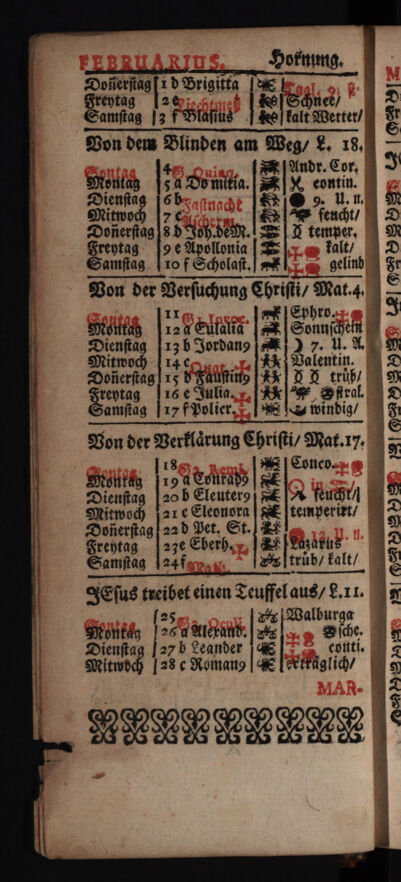 FEBRUARIUS. Hornung.
Doñerstag 1 d Brigitta Tagl. 9. st.
Freytag 2 e Liechtmeß Schnee/
Samstag 3 f Blasius kalt Wetter/
Von dem Blinden am Weg/ L. 18.
Sontag 4 G. Quinq. Andr. Cor.
Montag 5 a Domitia. contin.
Dienstag 6 b Fastnacht 9. U. n.
Mitwoch 7 c Ascherm. feucht/
Doñerstag 8 d Joh. deM. temper.
Freytag 9 e Apollonia kalt/
Samstag 10 f Scholast. gelind
Von der Versuchung Christi/ Mat.4.
Sontag 11 G 1. Invoc. Ephro.
Montag 12 a Eulalia Sonnschein
Dienstag 13 b Jordan9 7. U. A.
Mitwoch 14 c Quat. Valentin.
Doñerstag 15 d Faustin9 trüb/
Freytag 16 e Julia. Ostral.
Samstag 17 f Polier. windig/
Von der Verklärung Christi/ Mat.17.
Sontag 18 G 2. Remi. Conco.
Montag 19 a Conrad9 in
Dienstag 20 b Eleuter9 feucht/
Mitwoch 21 c Eleonora temperirt/
Doñerstag 22 d Pet. St. 12. U. n.
Freytag 23 e Eberh. Lazarus
Samstag 24 f Math. trüb/ kalt/
JEsus treibet einen Teuffel aus/ L.11.
Sontag 25 G 3. Oculi Walburga
Montag 26 a Alexand. Osche.
Dienstag 27 b Leander conti.
Mitwoch 28 c Roman9 erträglich/
MAR-